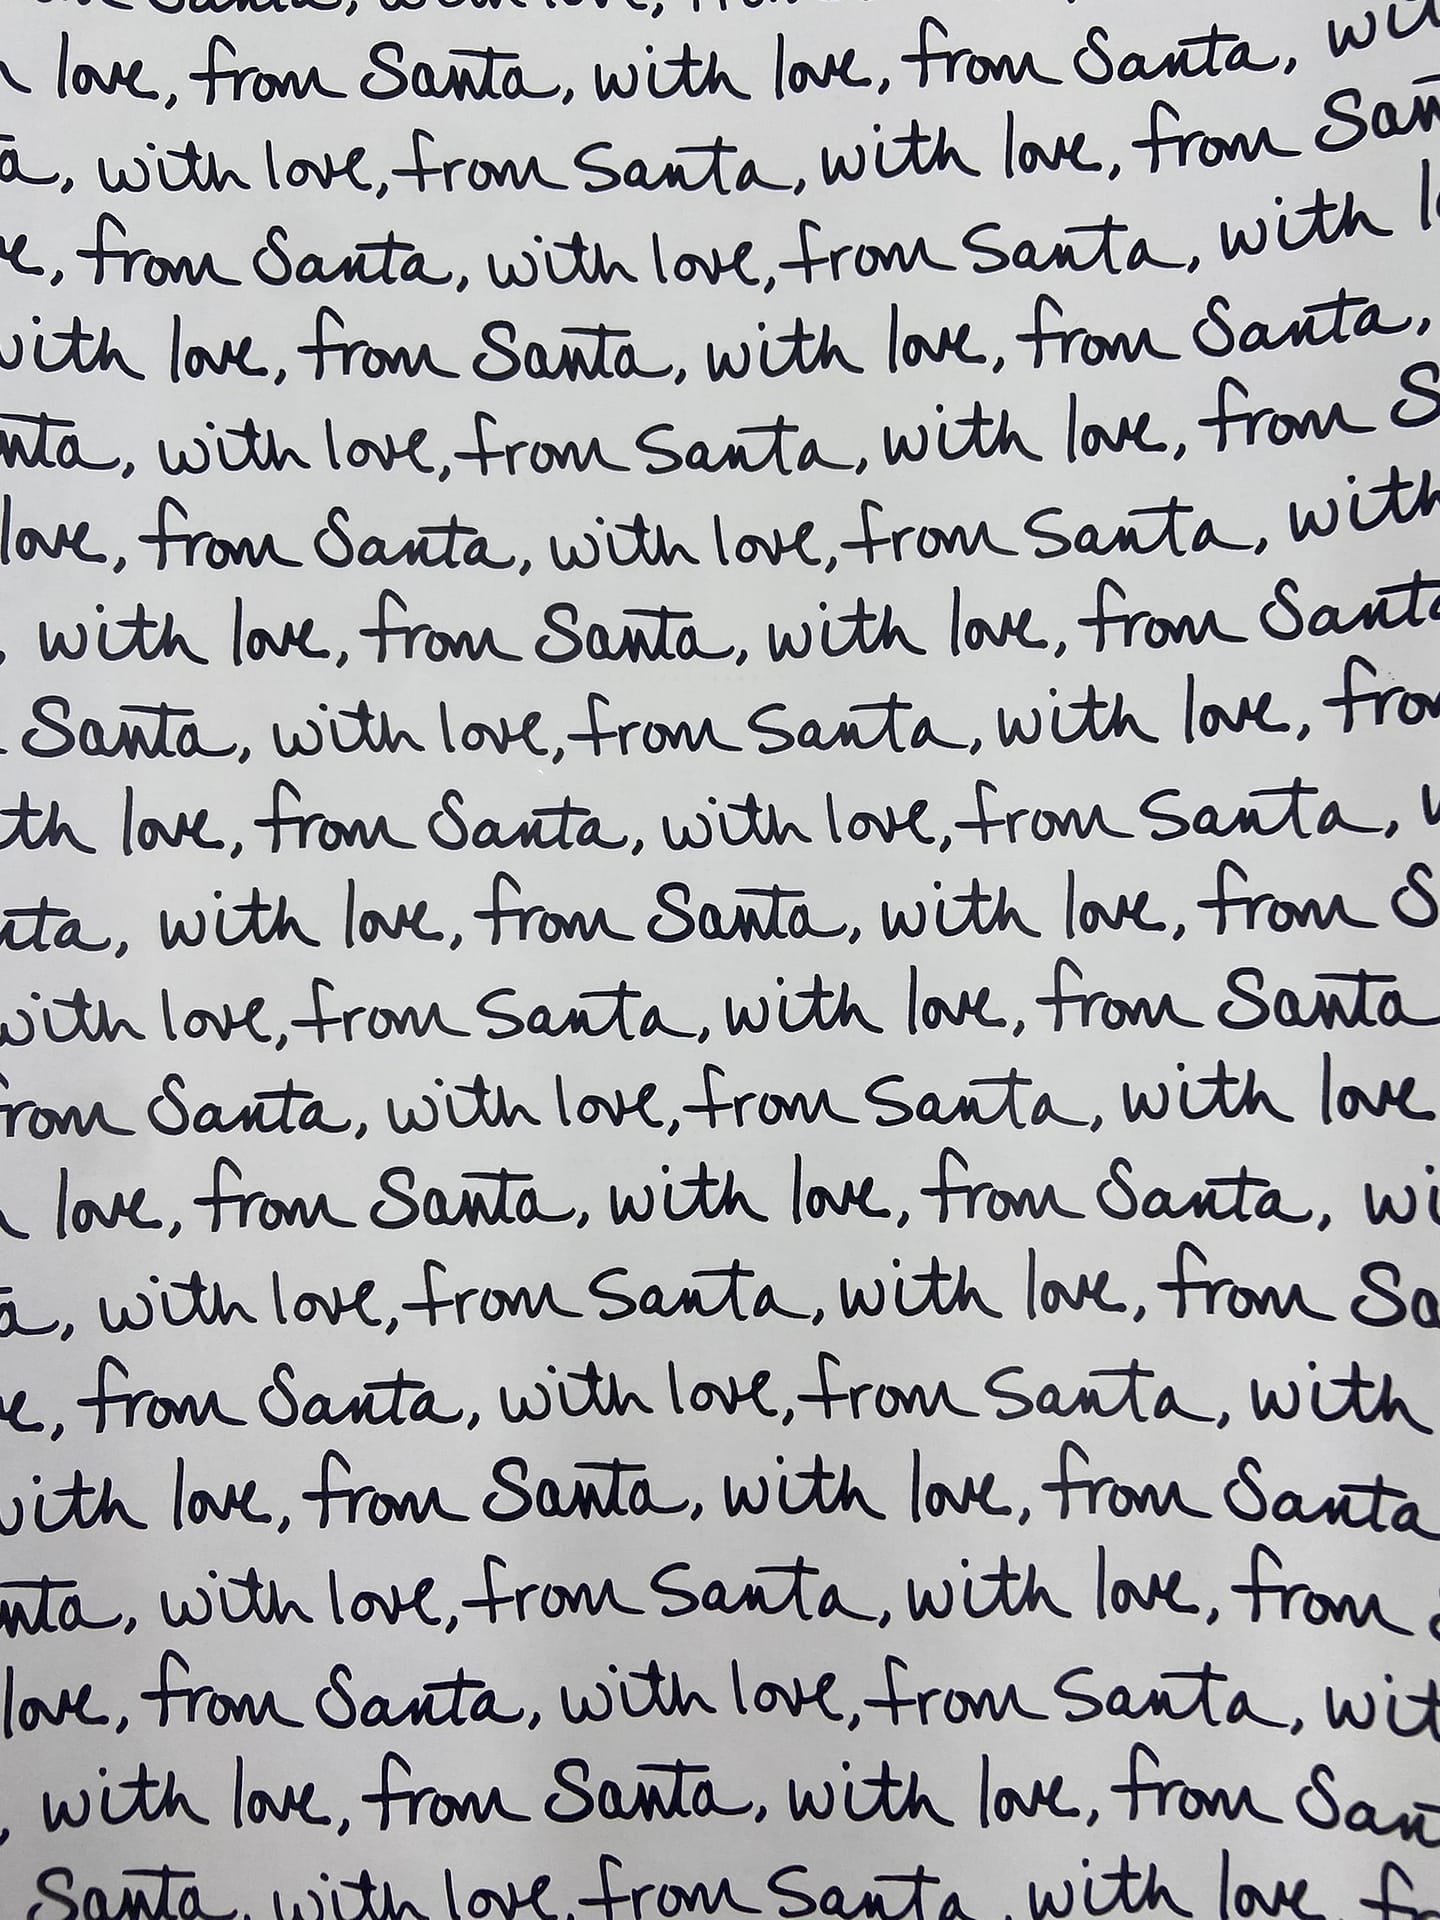 Santa, with love, from
love, from Santa, with love, from Santa, wit
a, with love, from Santa, with love, from San
e, from Santa, with love, from Santa, with l
with love, from Santa, with love, from Santa,
nta, with love, from Santa, with love, from S
love, from Santa, with love, from Santa, with
, with love, from Santa, with love, from Santa
Santa, with love, from Santa, with love, from
th love, from Santa, with love, from Santa, w
nta, with love, from Santa, with love, from S
with love, from Santa, with love, from Santa
from Santa, with love, from Santa, with love
love, from Santa, with love, from Santa, wi
a, with love, from Santa, with love, from Sa
e, from Santa, with love, from Santa, with
with love, from Santa, with love, from Santa
nta, with love, from Santa, with love, from S
love, from Santa, with love, from Santa, wit
, with love, from Santa, with love, from San
Santa, with love, from Santa, with love, fr